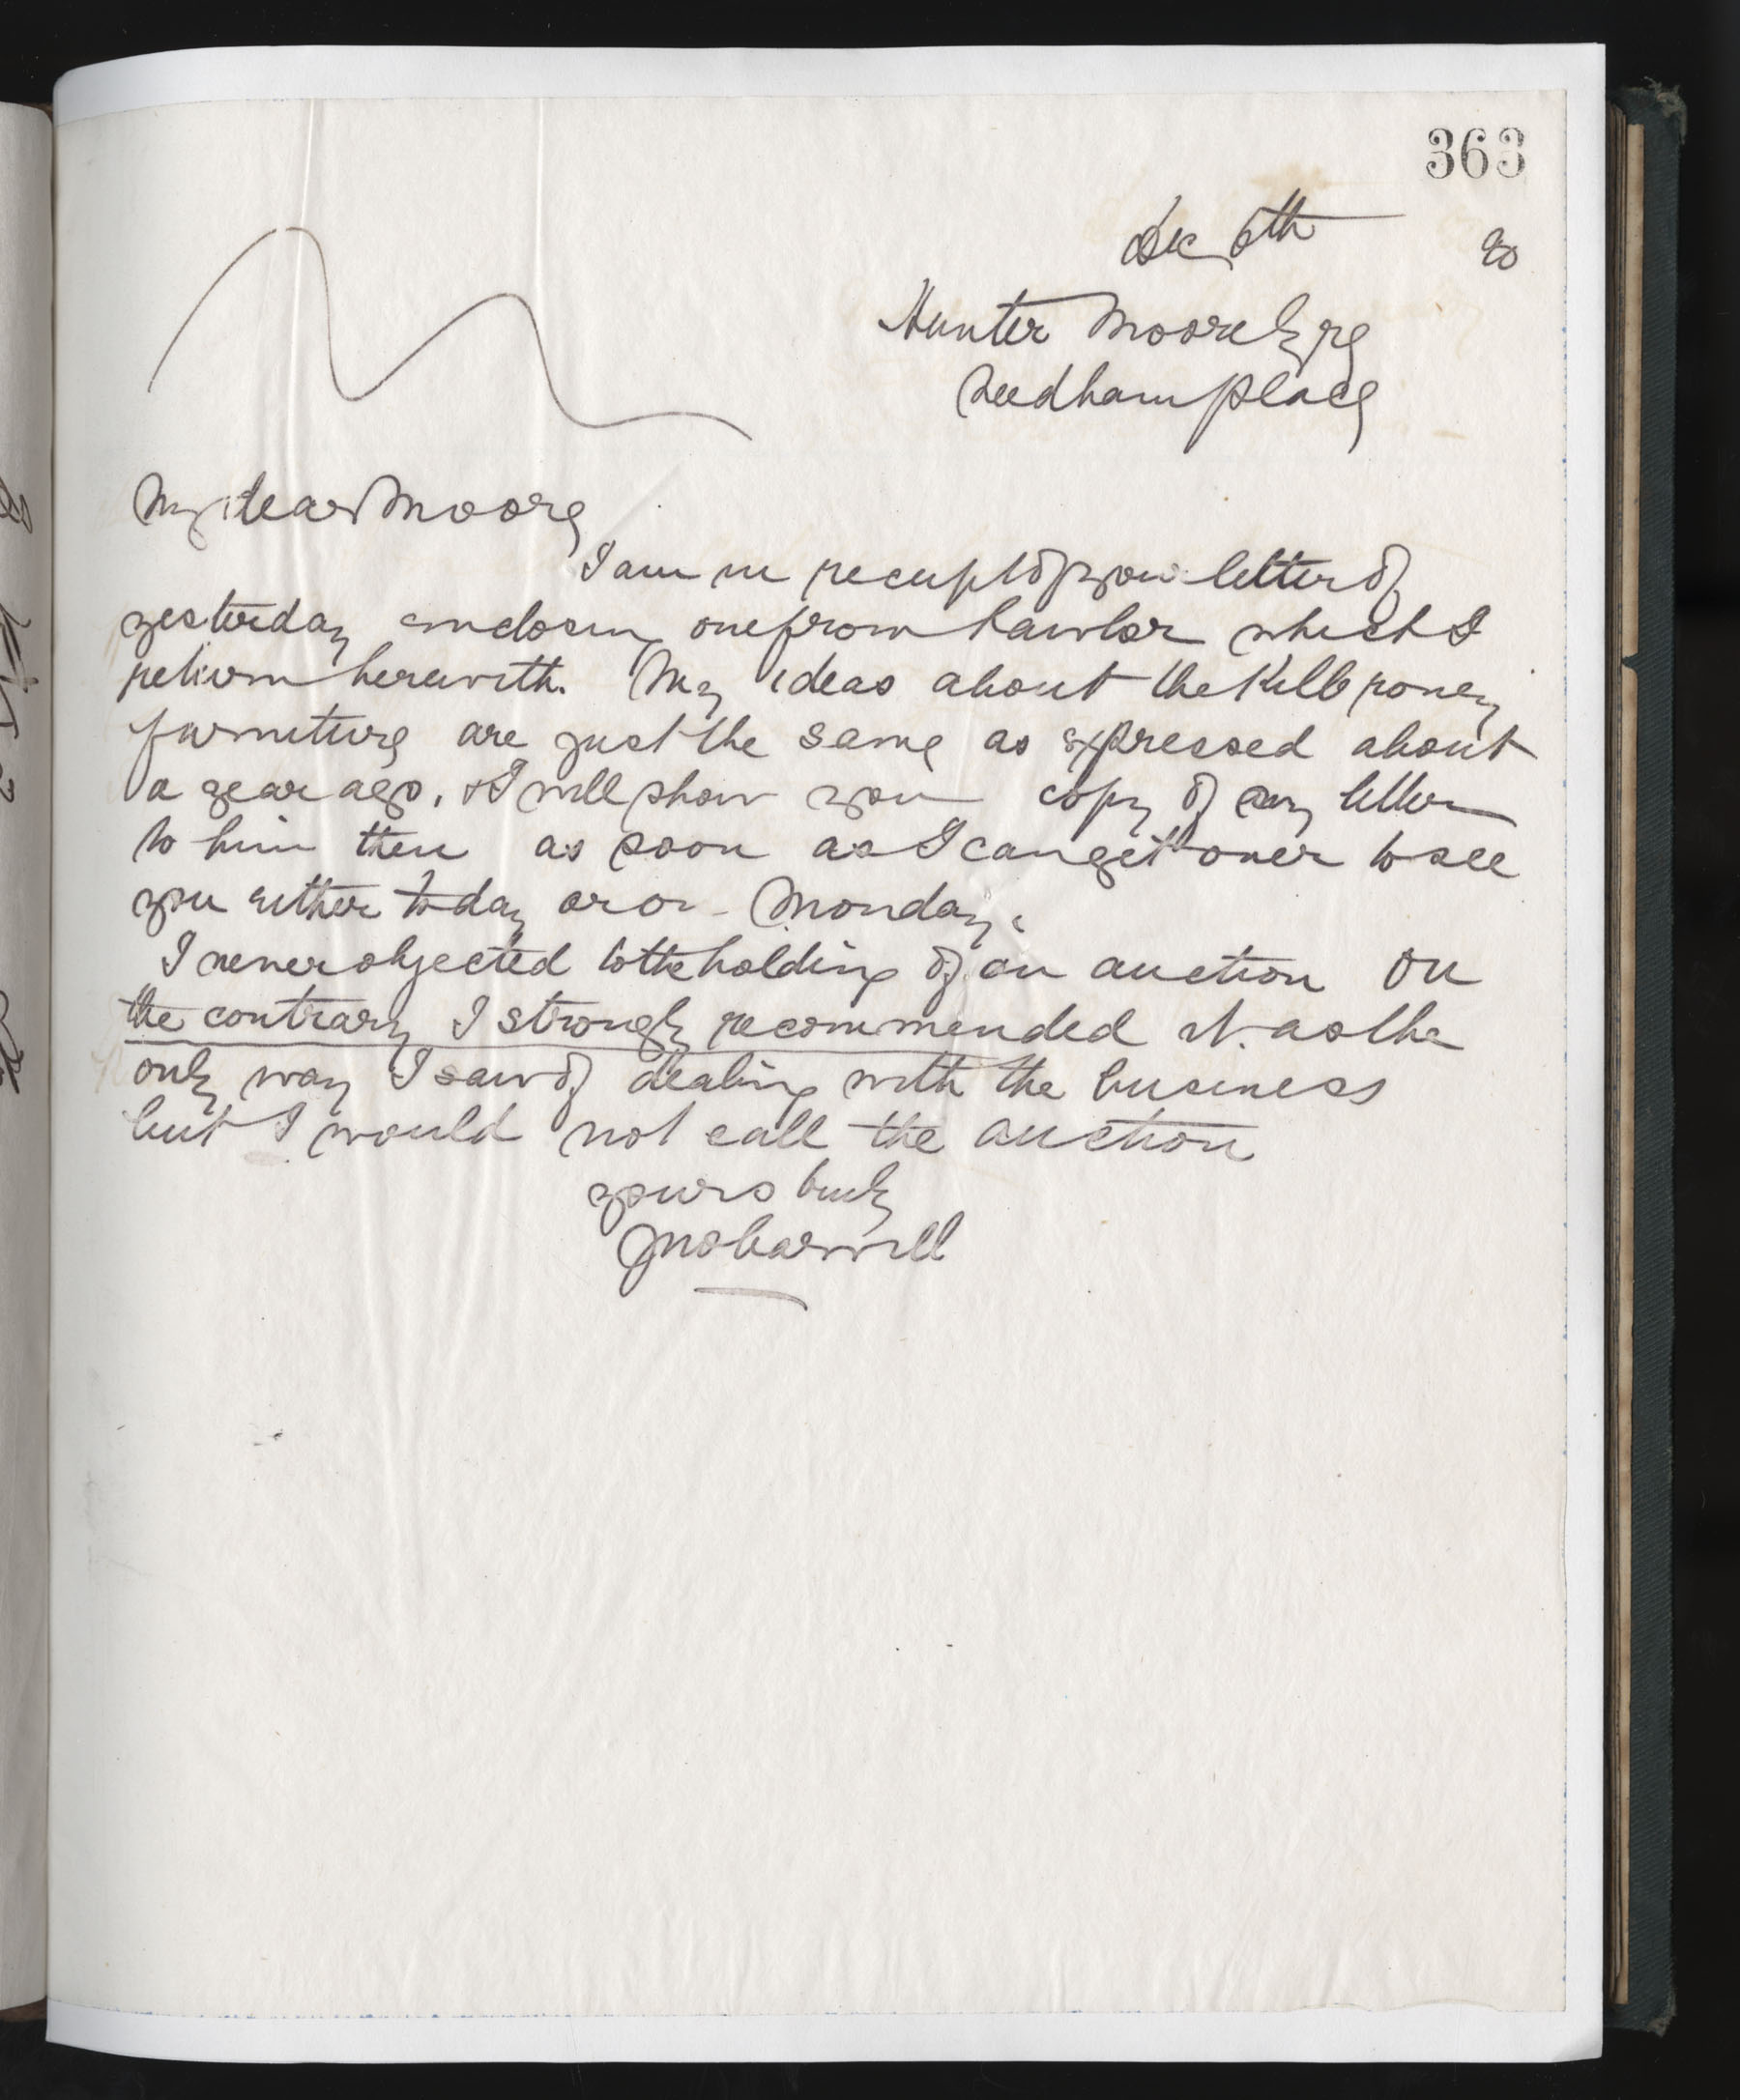 363
Dec 6th 90
Hunter Moore Esqre
Needham place
My dear Moore
I am in receipt of your letter of
yesterday enclosing one from Lawlor which I
return herewith. My ideas about the Killroney
furniture are just the same as expressed about
a year ago. & I will show you copy of my letter
to him then as soon as I can get over to see
you either today or on Monday.
I never objected to the holding of an auction On
the contrary I strongly recommended it. as the
only way I saw of dealing with the business
but I would not call the auction
yours truly